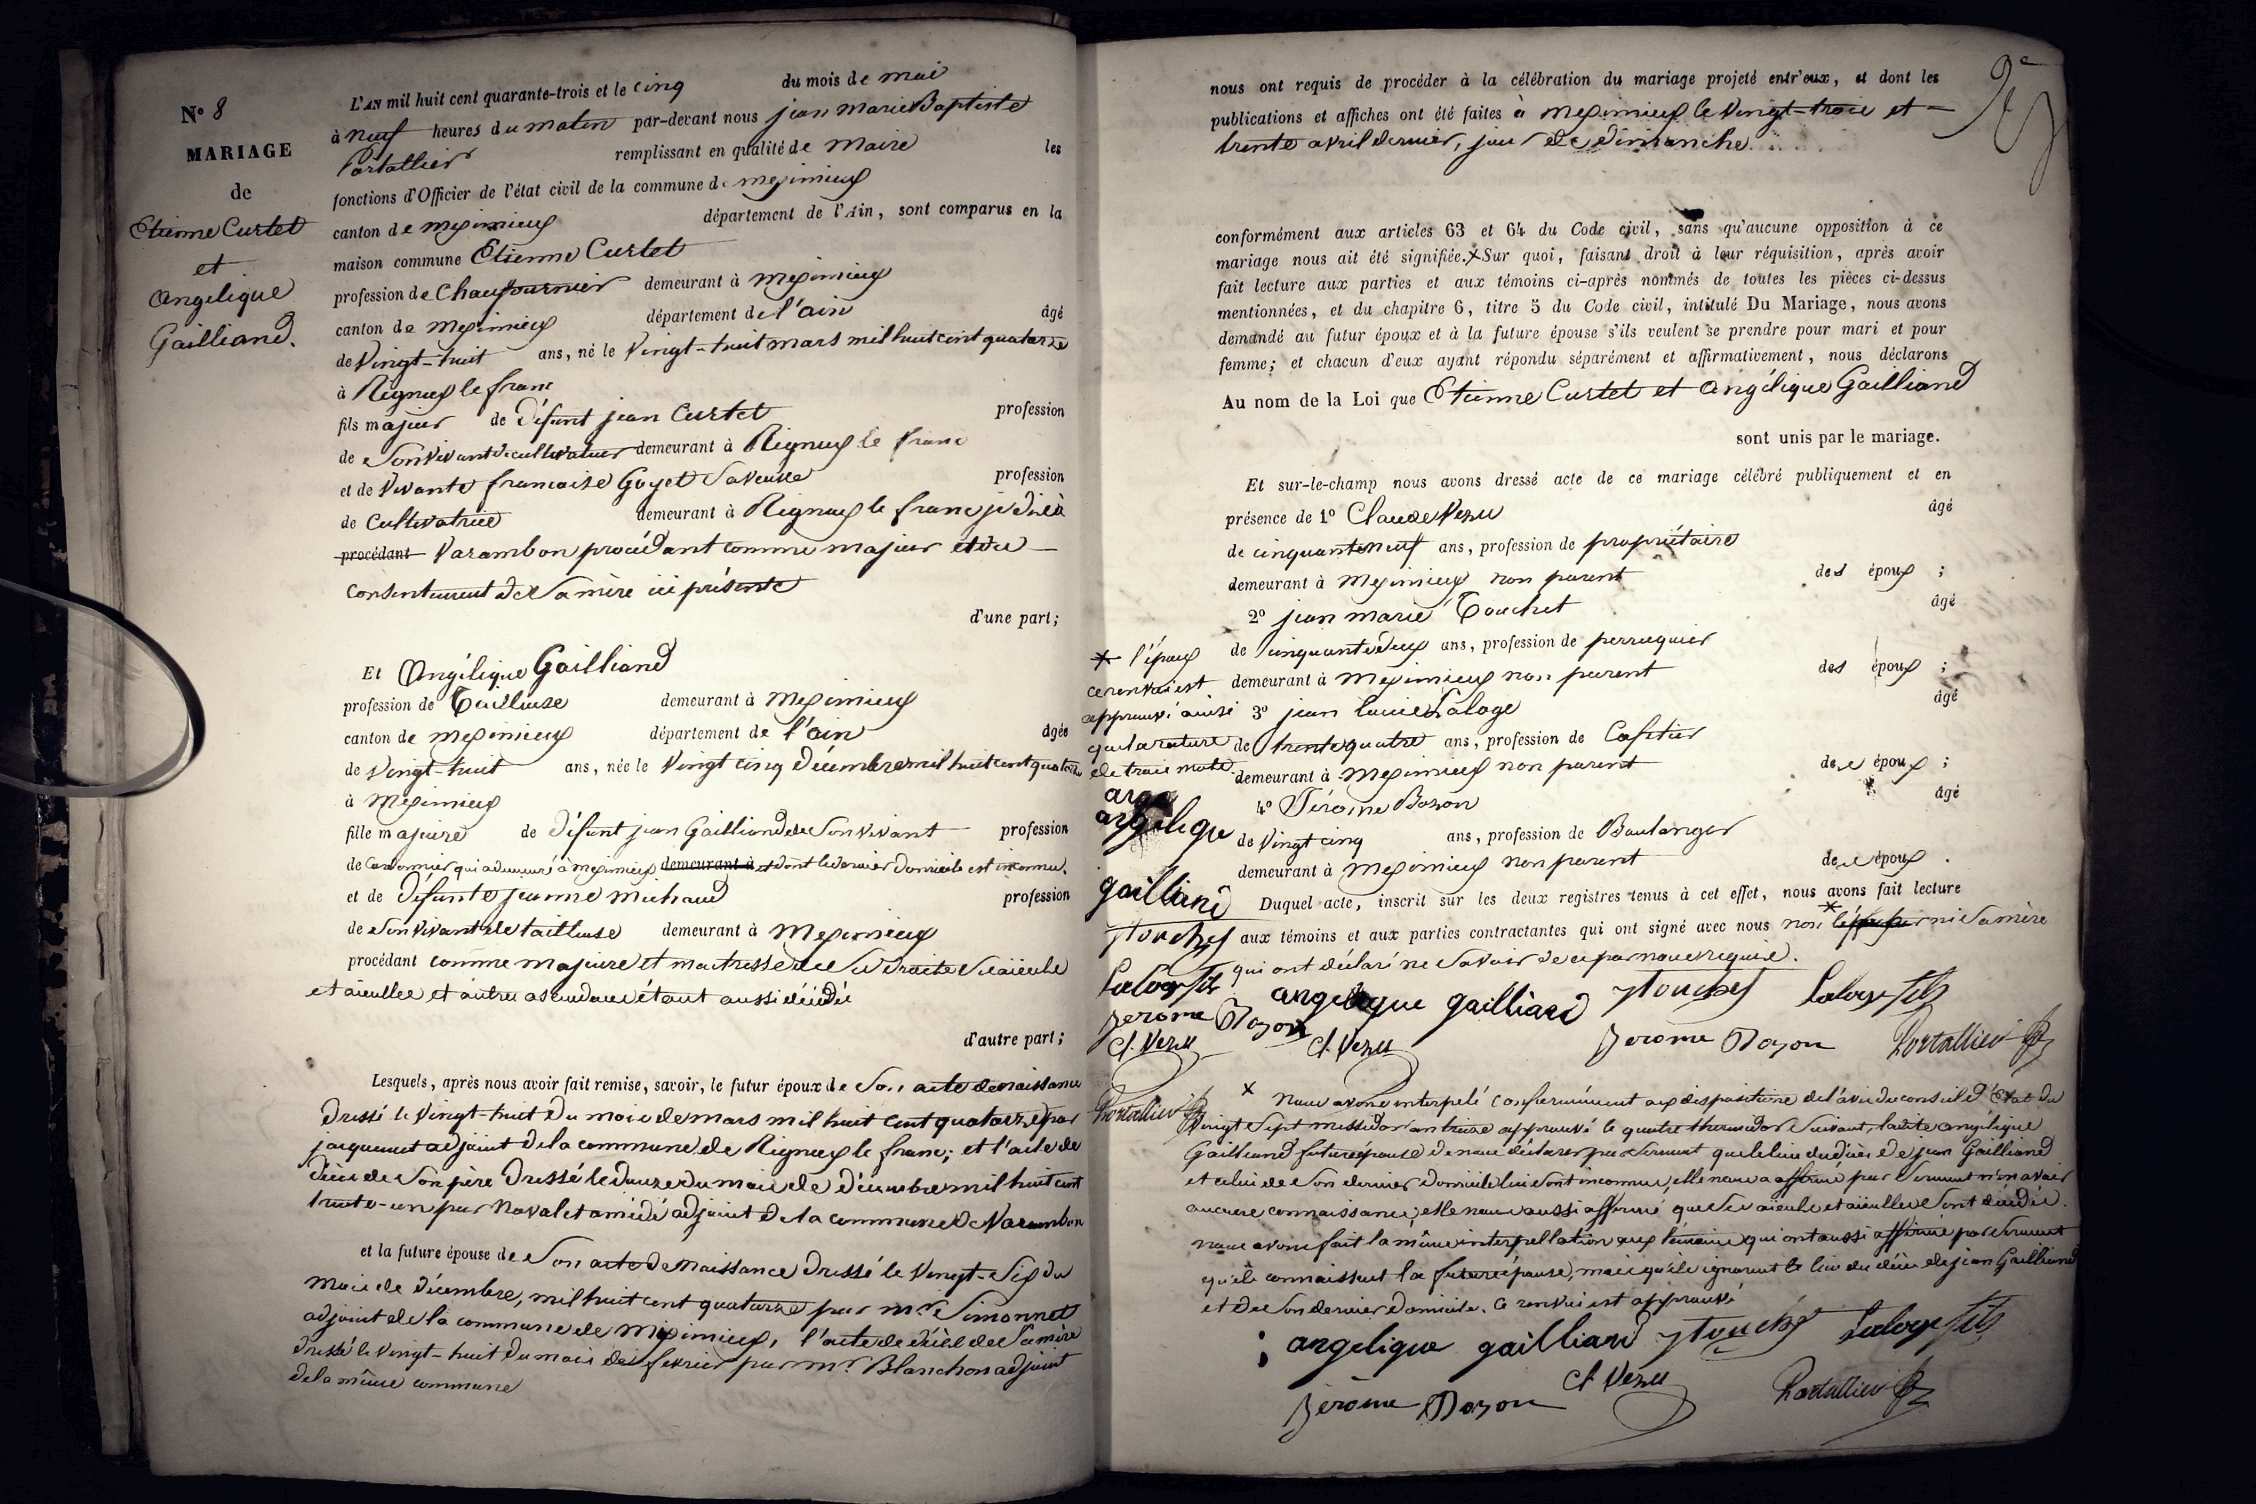 N° 8
MARIAGE
de
Etienne Curtet
et
Angelique
Gailliand.
L'AN mil huit cent quarante-trois et le cinq du mois de mai
à neuf heures du matin par-devant nous jean marie Baptiste
Portallier remplissant en qualité de maire les
fonctions d'Officier de l'état civil de la commune de meximieux
canton de meximieux département de l'Ain, sont comparus en la
maison commune Etienne Curtet
profession de Chaufournier demeurant à meximieux
canton de meximieux département de l'ain âgé
de Vingt-huit ans, né le Vingt-huit mars mil huit cent quatorze
à Rigneux le franc
fils majeur de défunt jean Curtet profession
de son vivant de cultivateur demeurant à Rigneux le franc
et de Vivante francoise Goyet sa veuve profession
de Cultivatrice demeurant à Rigneux le franc jadis à
procédant Varambon procédant comme majeur et du
consentement de sa mère ici présente
d'une part;
Et Angélique Gailliand
profession de Tailleuse demeurant à meximieux
canton de meximieux département de l'ain âgée
de Vingt-huit ans, née le Vingt cinq décembre mil huit cent quatorze
à meximieux
fille majeure de défunt jean Gailliand de son vivant profession
de Cordonnier qui a demeuré à meximieux demeurant à et dont le dernier domicile est inconnu.
et de défunte jeanne michaud profession
de son vivant de tailleuse demeurant à meximieux
procédant comme majeure et maitresse de ses droits ses aïeuls
et aïeulles et autres ascendans étant aussi décédés
d'autre part;
Lesquels, après nous avoir fait remise, savoir, le futur époux de son acte de naissance
dressé le Vingt-huit du mois de mars mil huit cent quatorze par
jacquemet adjoint de la commune de Rigneux le franc; et l'acte de
décès de son père dressé le douze du mois de décembre mil huit cent
trente-un par Noval et amédé adjoint de la commune de Varambon
et la future épouse de son acte de Naissance dressé le Vingt-six du
mois de décembre, mil huit cent quatorze par mr. Simonnet
adjoint de la commune de meximieux, l'acte de décès de sa mère
dressé le vingt-huit du mois de fevrier par mr. Blanchon adjoint
de la même commune
nous ont requis de procéder à la célébration du mariage projeté entr'eux, et dont les
publications et affiches ont été faites à meximieux le Vingt-trois et
trente avril dernier, jour de dimanche.
conformément aux articles 63 et 64 du Code civil, sans qu'aucune opposition à ce
mariage nous ait été signifiée. X Sur quoi, faisant droit à leur réquisition, après avoir
fait lecture aux parties et aux témoins ci-après nommés de toutes les pièces ci-dessus
mentionnées, et du chapitre 6, titre 5 du Code civil, intitulé Du Mariage, nous avons
demandé au futur époux et à la future épouse s'ils veulent se prendre pour mari et pour
femme; et chacun d'eux ayant répondu séparément et affirmativement, nous déclarons
Au nom de la Loi que Etienne Curtet et Angélique Gailliand
sont unis par le mariage.
Et sur-le-champ nous avons dressé acte de ce mariage célébré publiquement et en
présence de 1° Claude Venu âgé
de cinquante neuf ans, profession de propriétaire
demeurant à meximieux non parent des époux ;
2° jean marie Touchet âgé
de cinquante deux ans, profession de perruquier
demeurant à meximieux non parent des époux ;
3° jean Laloge âgé
de trente quatre ans, profession de Cafetier
demeurant à meximieux non parent des époux ;
4° Jérome Bozon âgé
de Vingt cinq ans, profession de Boulanger
demeurant à meximieux non parent des époux .
Duquel acte, inscrit sur les deux registres tenus à cet effet, nous avons fait lecture
aux témoins et aux parties contractantes qui ont signé avec nous non * ni sa mère
qui ont déclaré ne savoir de ce par nous requis.
* l'époux
ce renvoi est
approuvé ainsi
que la rature
de trois mots
ange
angelique
gailliand
jtouchet
Laloge fils
Jerome Bozon
Cl. Venu
Portallier
angelique gailliard jtouchet Laloge fils
Cl. Venu Jerome Bozon Portallier
X nous avons interpelé conformément aux dispositions de l'avis du conseil d'Etat du
Vingt sept messidor an treize approuvé le quatre thermidor suivant, ladite angélique
Gailliand future épouse de nous déclarer par serment que le lieu du décès de jean Gailliand
et celui de son dernier domicile lui sont inconnus, elle nous a affirmé par serment n'en avoir
aucune connaissance, elle nous a aussi affirmé que ses aïeuls et aïeulles sont décédés.
nous avons fait la même interpellation aux témoins qui ont aussi affirmé par serment
qu'ils connaissent la future épouse, mais qu'ils ignorent le lieu du décès de jean Gailliand
et de son dernier domicile. Ce renvoi est approuvé
angelique gailliard jtouchet Laloge fils
Jérome Bozon Cl. Venu Portallier